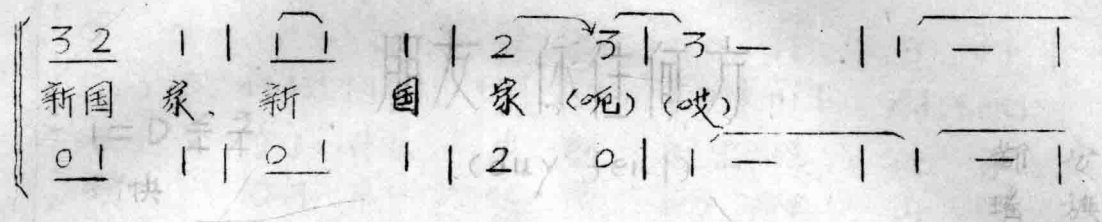 3 2 1 | 1 1 1 | 2 3 | 3 — | 1 — |
新国 家、 新 国 家 (呃) (哎)
0 1 1 | 0 1 1 | 2 0 | 1 — | 1 — |